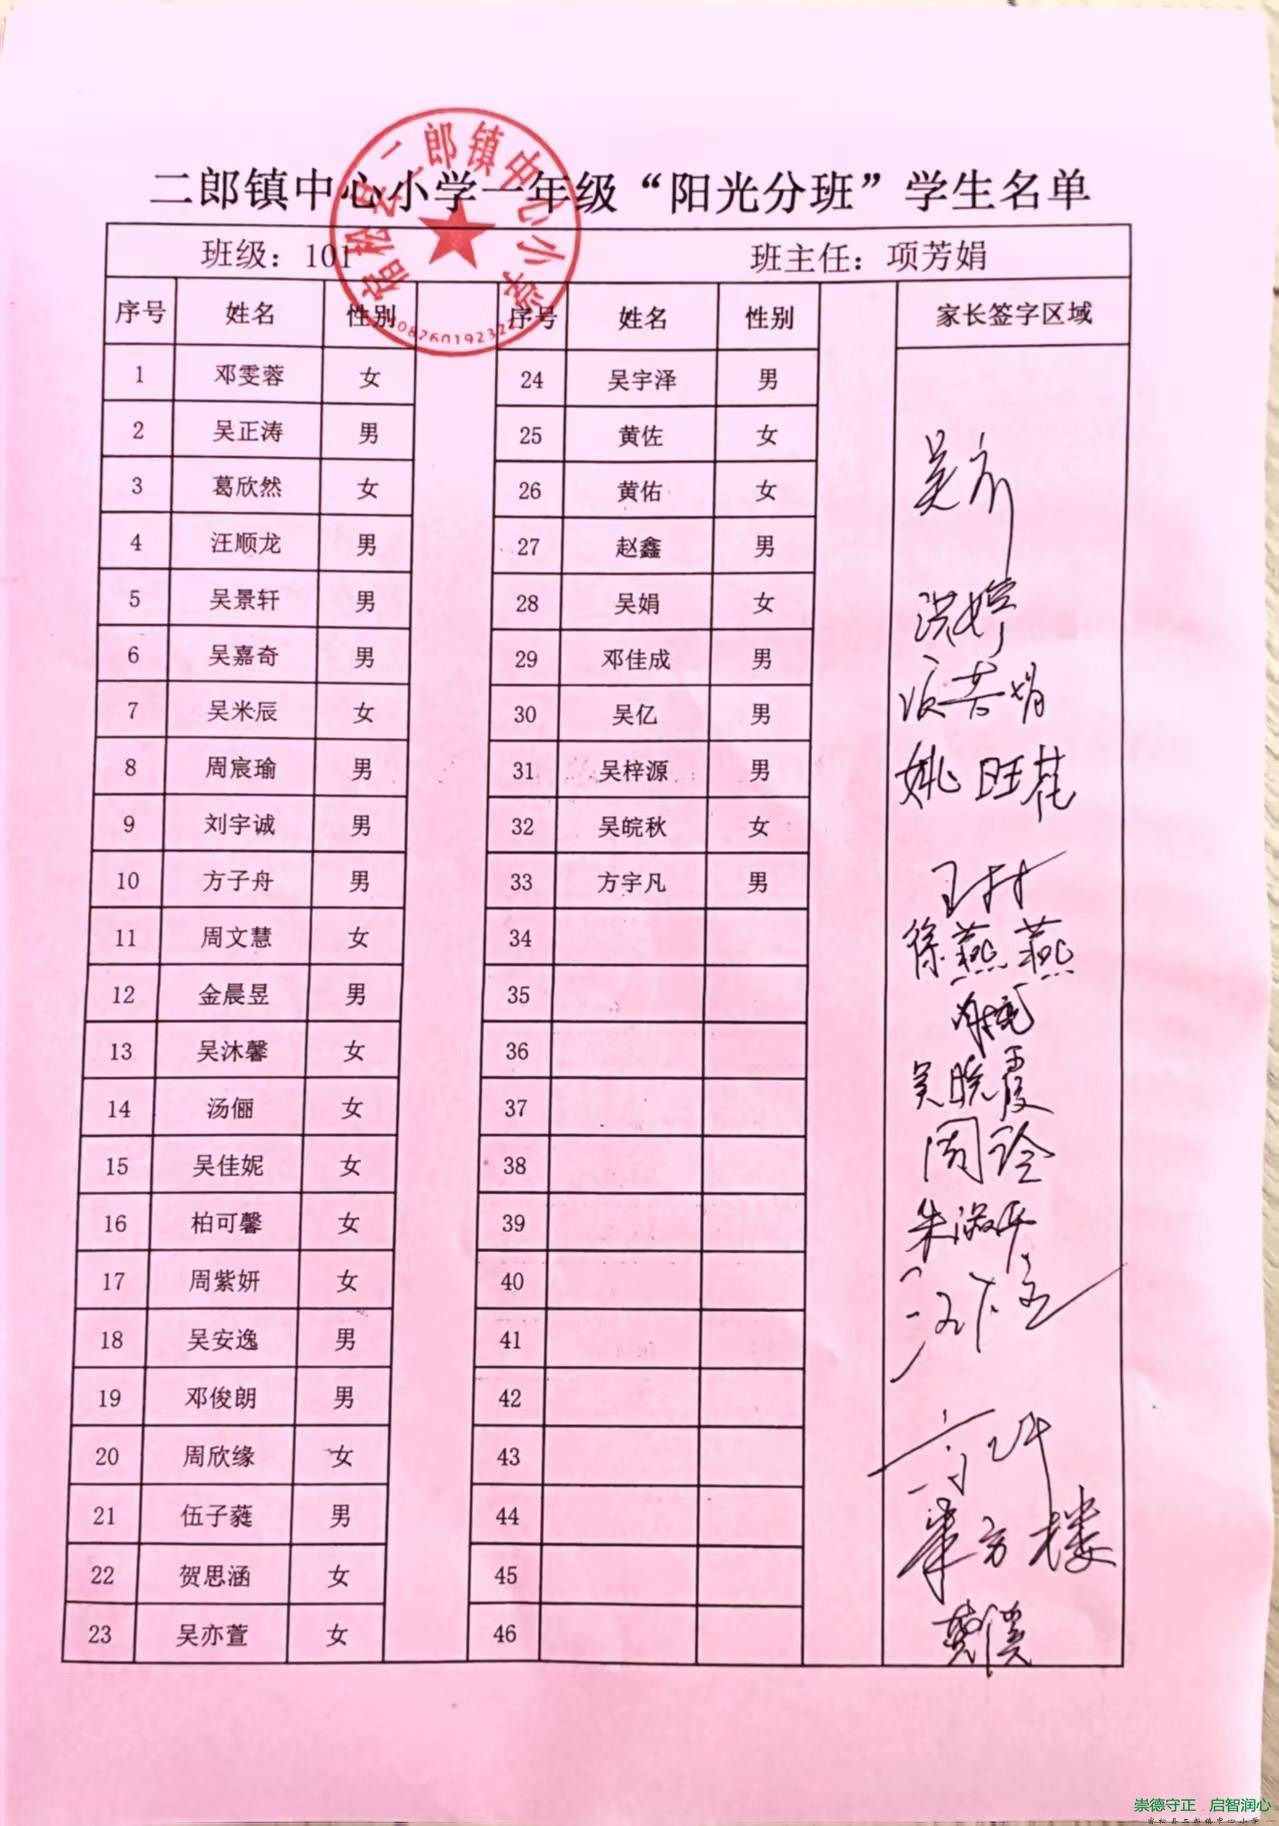 二郎镇中心小学一年级“阳光分班”学生名单
宿松县二郎镇中心小学
班级：101 班主任：项芳娟
序号 姓名 性别 序号 姓名 性别 家长签字区域
1 邓雯蓉 女 24 吴宇泽 男
2 吴正涛 男 25 黄佐 女
3 葛欣然 女 26 黄佑 女
4 汪顺龙 男 27 赵鑫 男
5 吴景轩 男 28 吴娟 女
6 吴嘉奇 男 29 邓佳成 男
7 吴米辰 女 30 吴亿 男
8 周宸瑜 男 31 吴梓源 男
9 刘宇诚 男 32 吴皖秋 女
10 方子舟 男 33 方宇凡 男
11 周文慧 女 34
12 金晨昱 男 35
13 吴沐馨 女 36
14 汤俪 女 37
15 吴佳妮 女 38
16 柏可馨 女 39
17 周紫妍 女 40
18 吴安逸 男 41
19 邓俊朗 男 42
20 周欣缘 女 43
21 伍子蕤 男 44
22 贺思涵 女 45
23 吴亦萱 女 46
洪婷
姚旺花
徐燕燕
吴皖霞
崇德守正 启智润心
宿松县二郎镇中心小学